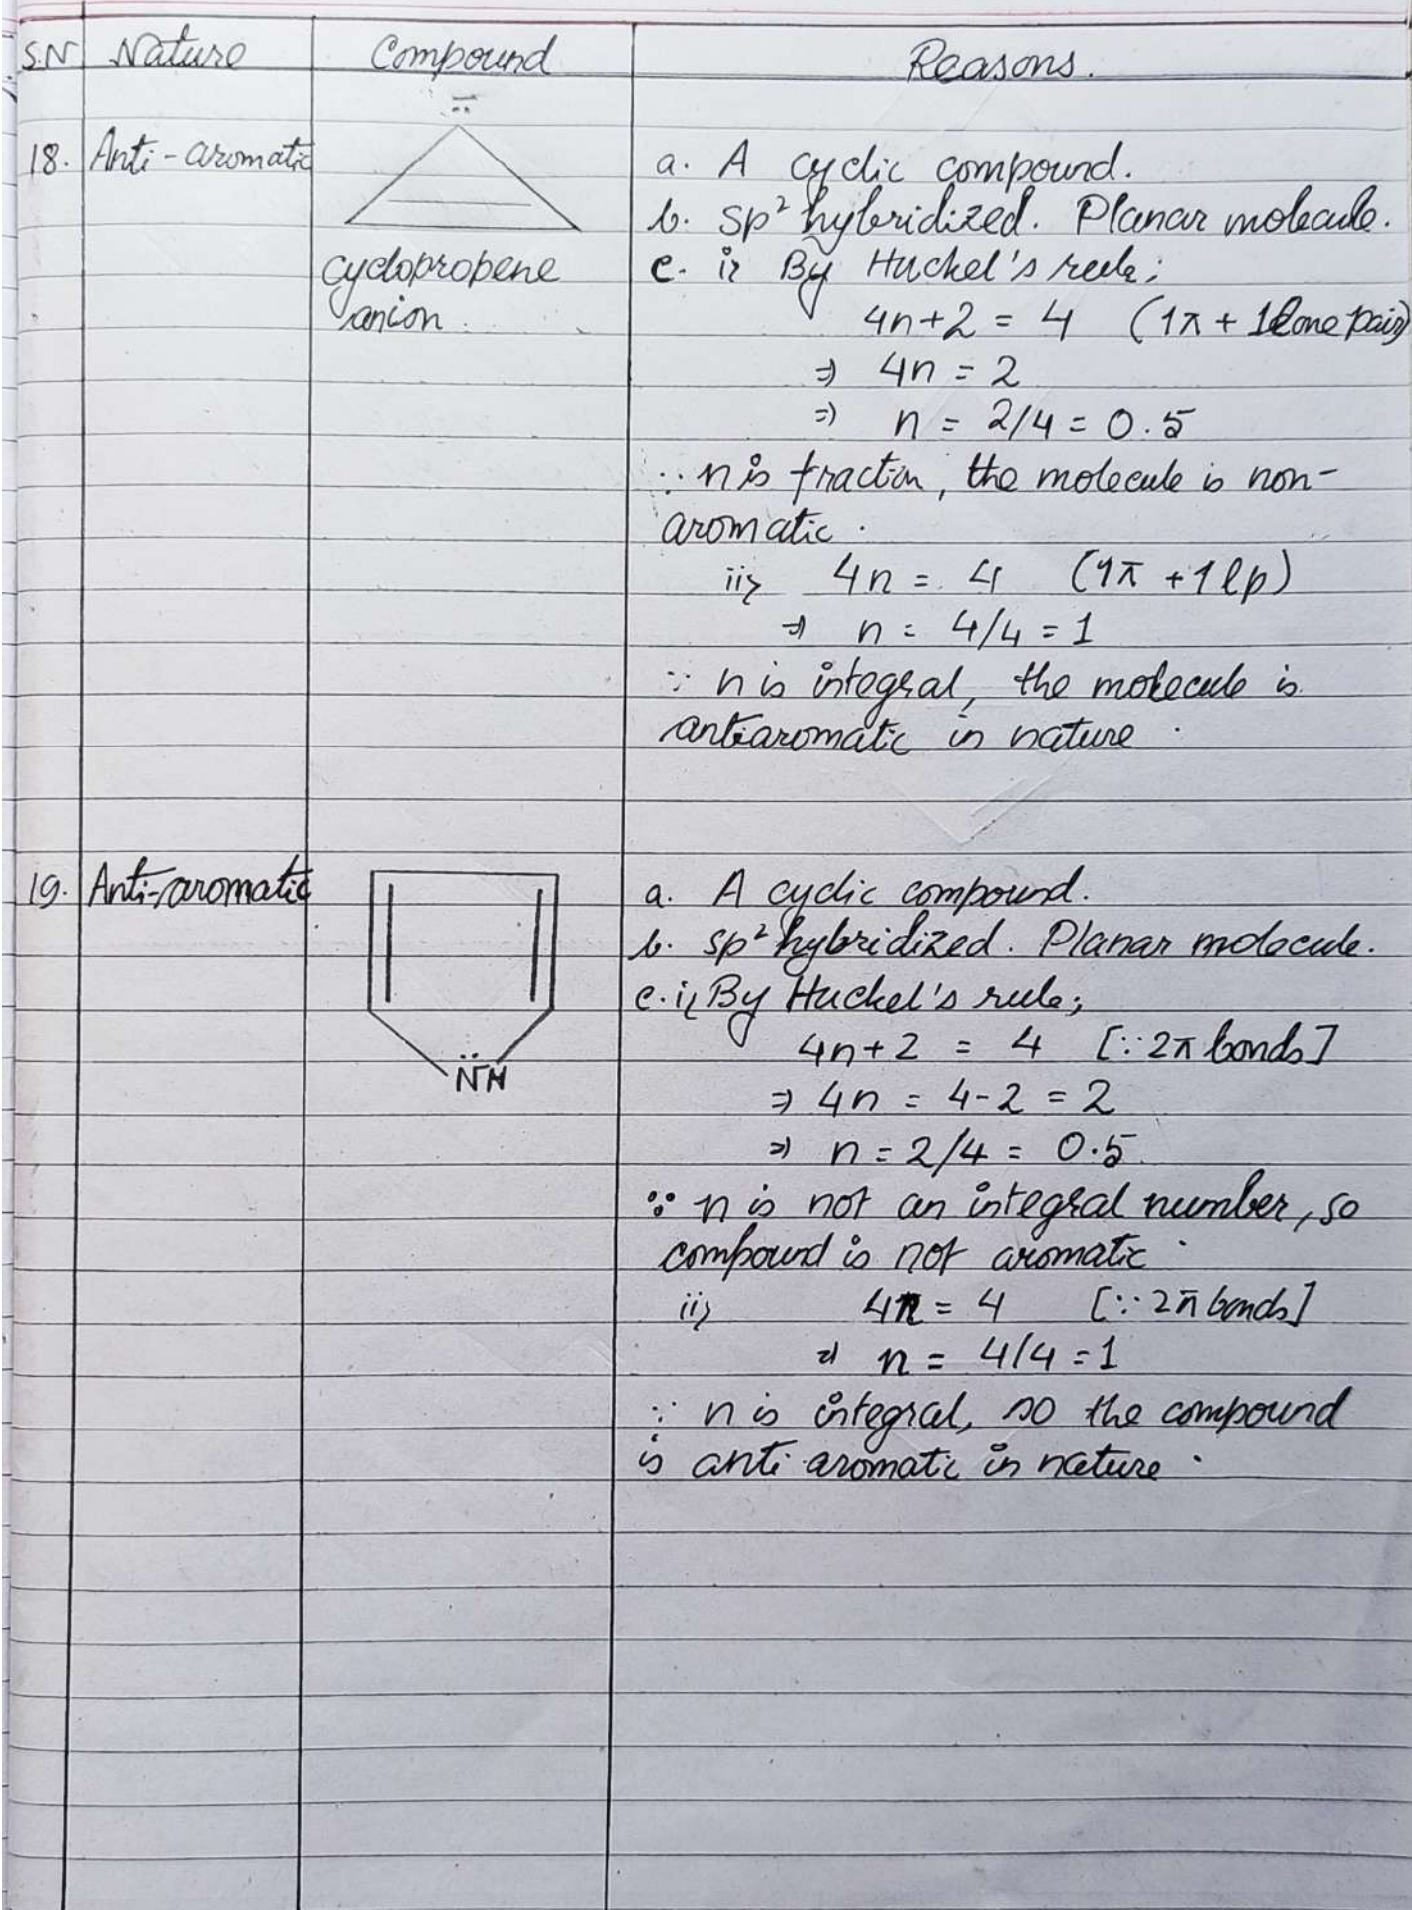 S.N Nature Compound Reasons.
18. Anti-aromatic
cyclopropene
anion.
a. A cyclic compound.
b. sp² hybridized. Planar molecule.
c. i> By Huckel's rule;
4n+2 = 4 (1π + 1 lone pair)
⇒ 4n = 2
⇒ n = 2/4 = 0.5
∵ n is fraction, the molecule is non-
aromatic.
ii> 4n = 4 (1π + 1lp)
⇒ n = 4/4 = 1
∵ n is integral, the molecule is
antiaromatic in nature.
19. Anti-aromatic
N̈H
a. A cyclic compound.
b. sp² hybridized. Planar molecule.
c. i> By Huckel's rule;
4n+2 = 4 [∵ 2π bonds]
⇒ 4n = 4-2 = 2
⇒ n = 2/4 = 0.5
∵ n is not an integral number, so
compound is not aromatic.
ii> 4n = 4 [∵ 2π bonds]
⇒ n = 4/4 = 1
∵ n is integral, so the compound
is anti aromatic in nature.